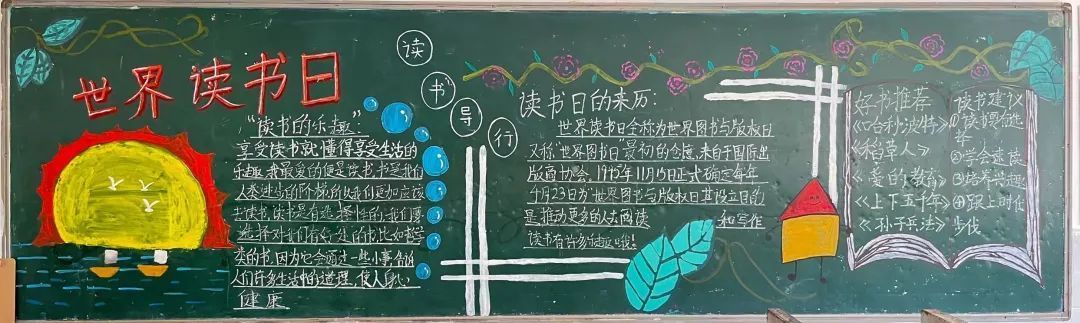 世界读书日
读书导行
"读书的乐趣":
享受读书就懂得享受生活的
乐趣,我最爱的便是读书,书是我们
人类进步的阶梯,所以我们更加应该
去读书,读书是有选择性的,我们要
选择对我们有好处的书,比如哲学
类的书,因为它会通过一些小事告诉
人们许多生活中的道理,使人身心
健康
读书日的来历:
世界读书日全称为世界图书与版权日
又称"世界图书日"最初的
来自于国际出
版商协会。1995年11月15日正式确定每年
4月23日为"世界图书与版权日其设立目的
是推动更多的人去阅读 和写作
读书有许多乐趣哦!
好书推荐
《哈利·波特》
《稻草人》
《爱的教育》
《上下五千年》
《孙子兵法》
读书建议
①读书要有选
择
②学会速读
③培养兴趣
④跟上时代
步伐